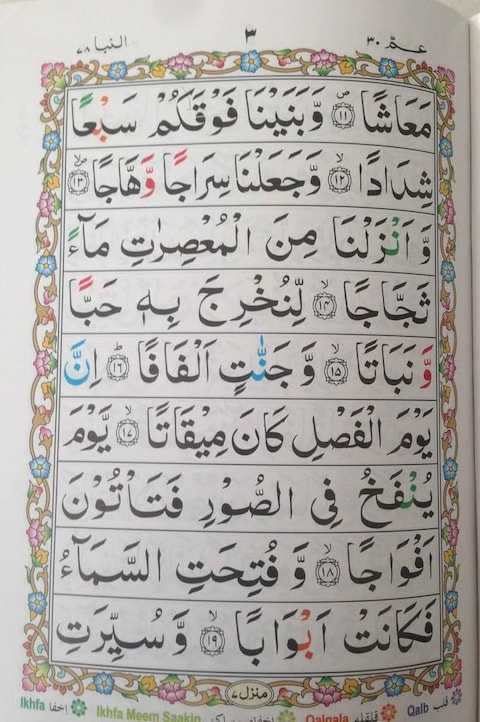 عمّ ٣٠ ٣ النبا ٧٨
مَعَاشًا ﴿۱۱﴾ وَّبَنَيْنَا فَوْقَكُمْ سَبْعًا
شِدَادًا ﴿۱۲﴾ وَّجَعَلْنَا سِرَاجًا وَّهَّاجًا ﴿۱۳﴾
وَّاَنْزَلْنَا مِنَ الْمُعْصِرٰتِ مَآءً
ثَجَّاجًا ﴿۱۴﴾ لِّنُخْرِجَ بِهٖ حَبًّا
وَّنَبَاتًا ﴿۱۵﴾ وَّجَنّٰتٍ اَلْفَافًا ﴿۱۶﴾ اِنَّ
يَوْمَ الْفَصْلِ كَانَ مِيْقَاتًا ﴿۱۷﴾ يَّوْمَ
يُنْفَخُ فِى الصُّوْرِ فَتَاْتُوْنَ
اَفْوَاجًا ﴿۱۸﴾ وَّفُتِحَتِ السَّمَآءُ
فَكَانَتْ اَبْوَابًا ﴿۱۹﴾ وَّسُيِّرَتِ
منزل ٧
Ikhfa اخفا Ikhfa Meem Saakin Qalqala قلقله Qalb قلب